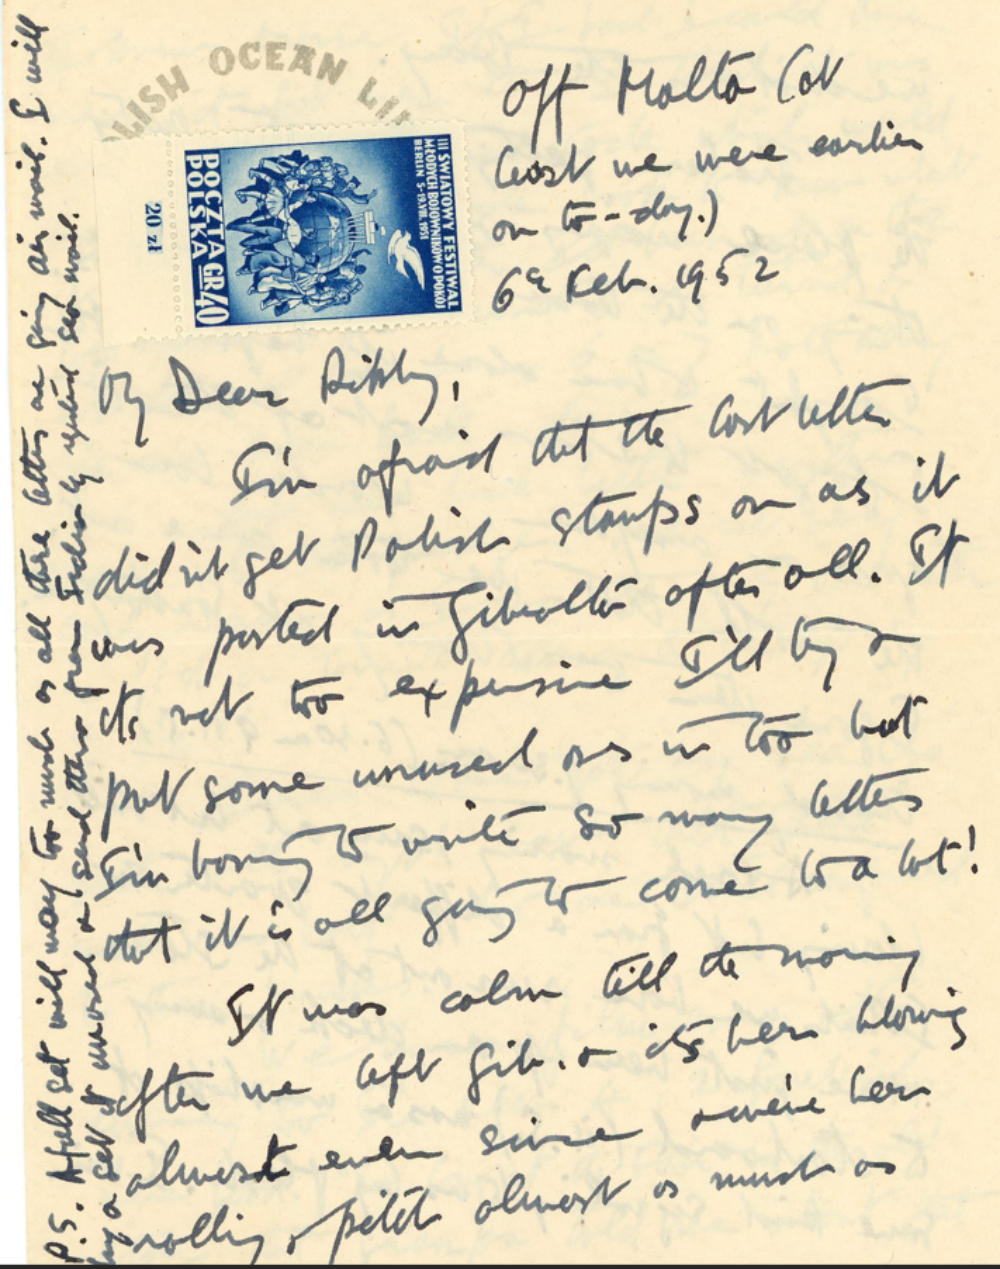 OCEAN
Off Malta (at
least we were earlier
on to-day.)
6th Feb. 1952
III ŚWIATOWY FESTIWAL
MŁODYCH BOJOWNIKÓW O POKÓJ
BERLIN 5-19.VIII.1951
POCZTA
POLSKA GR/40
20 zł
My Dear
I'm afraid that the last letter
didn't get Polish stamps on as it
was posted in Gibraltar after all. If
its not too expensive I'll try &
put some unused ones in too but
I'm having to write so many letters
that it is all going to come to a lot!
It was calm till the morning
after we left Gib. & its been blowing
almost ever since & we've been
rolling & pitch almost as much as
P.S. A full set will way too much as all these letters are going air mail. I will
buy a set unused & send them from sea mail.